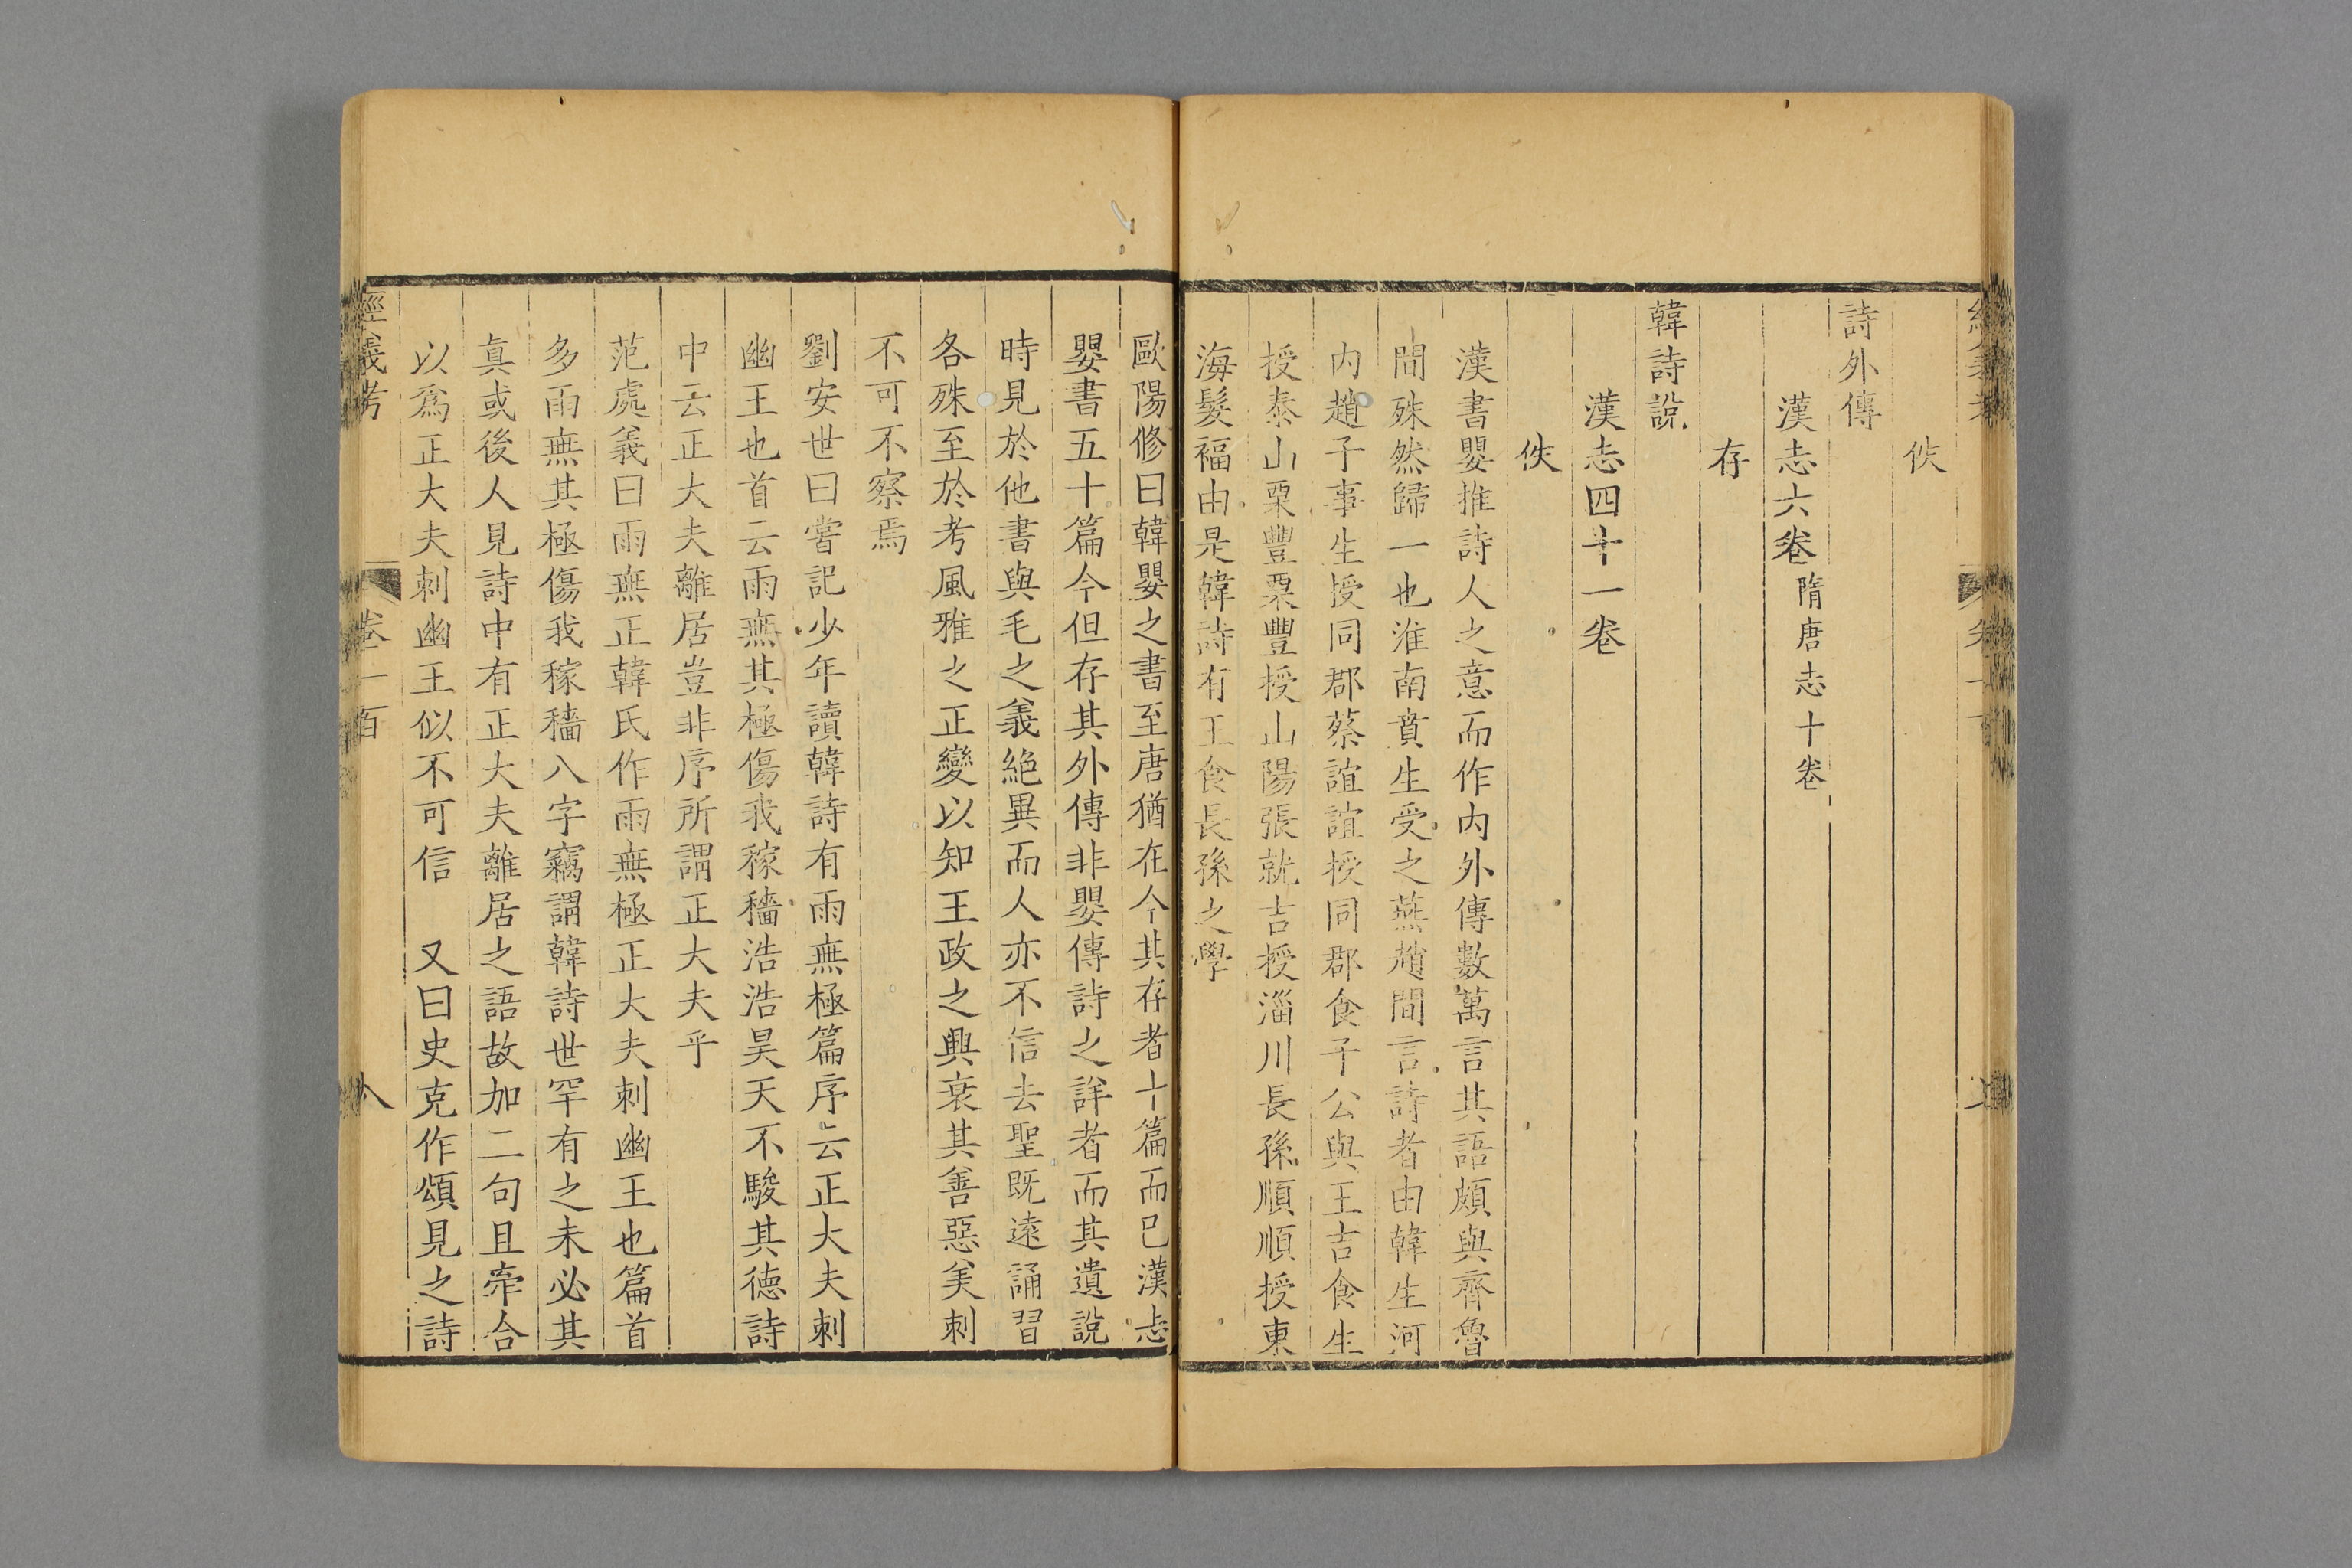 佚
詩外傳
漢志六卷隋唐志十卷
存
韓詩說
漢志四十一卷
佚
漢書嬰推詩人之意而作内外傳數萬言其語頗與齊魯
間殊然歸一也淮南賁生受之燕趙間言詩者由韓生河
内趙子事生授同郡蔡誼誼授同郡食子公與王吉食生
授泰山栗豐栗豐授山陽張就吉授淄川長孫順順授東
海髮福由是韓詩有王食長孫之學
歐陽修曰韓嬰之書至唐猶在今其存者十篇而已漢志
嬰書五十篇今但存其外傳非嬰傳詩之詳者而其遺說
時見於他書與毛之義絶異而人亦不信去聖既遠誦習
各殊至於考風雅之正變以知王政之興衰其善惡美刺
不可不察焉
劉安世曰嘗記少年讀韓詩有雨無極篇序云正大夫刺
幽王也首云雨無其極傷我稼穡浩浩昊天不駿其德詩
中云正大夫離居豈非序所謂正大夫乎
范處義曰雨無正韓氏作雨無極正大夫刺幽王也篇首
多雨無其極傷我稼穡八字竊謂韓詩世罕有之未必其
真或後人見詩中有正大夫離居之語故加二句且牽合
以爲正大夫刺幽王似不可信　又曰史克作頌見之詩
經義考
卷一百
八